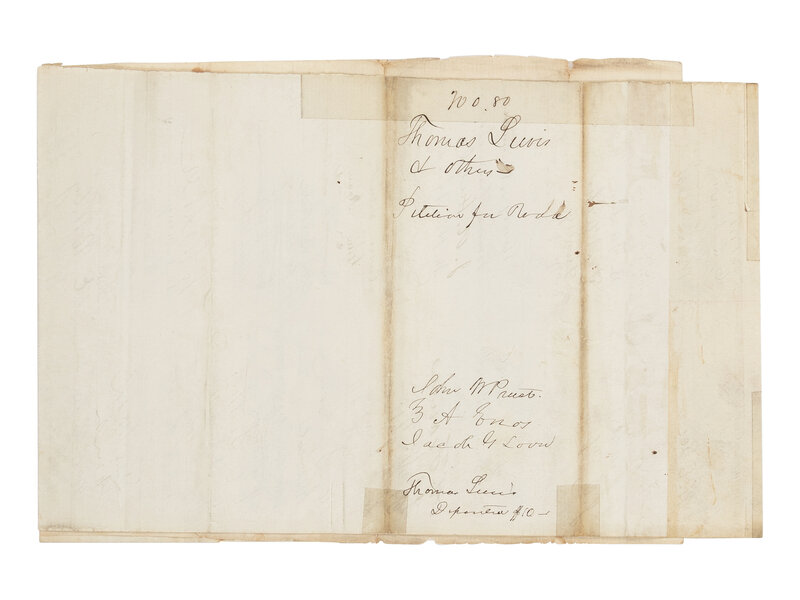 No. 80
Thomas Lewis
& others
Petition for Road
John W Priest.
Z A Enos
Jacob G Loose
Thomas Lewis
Deposited $10